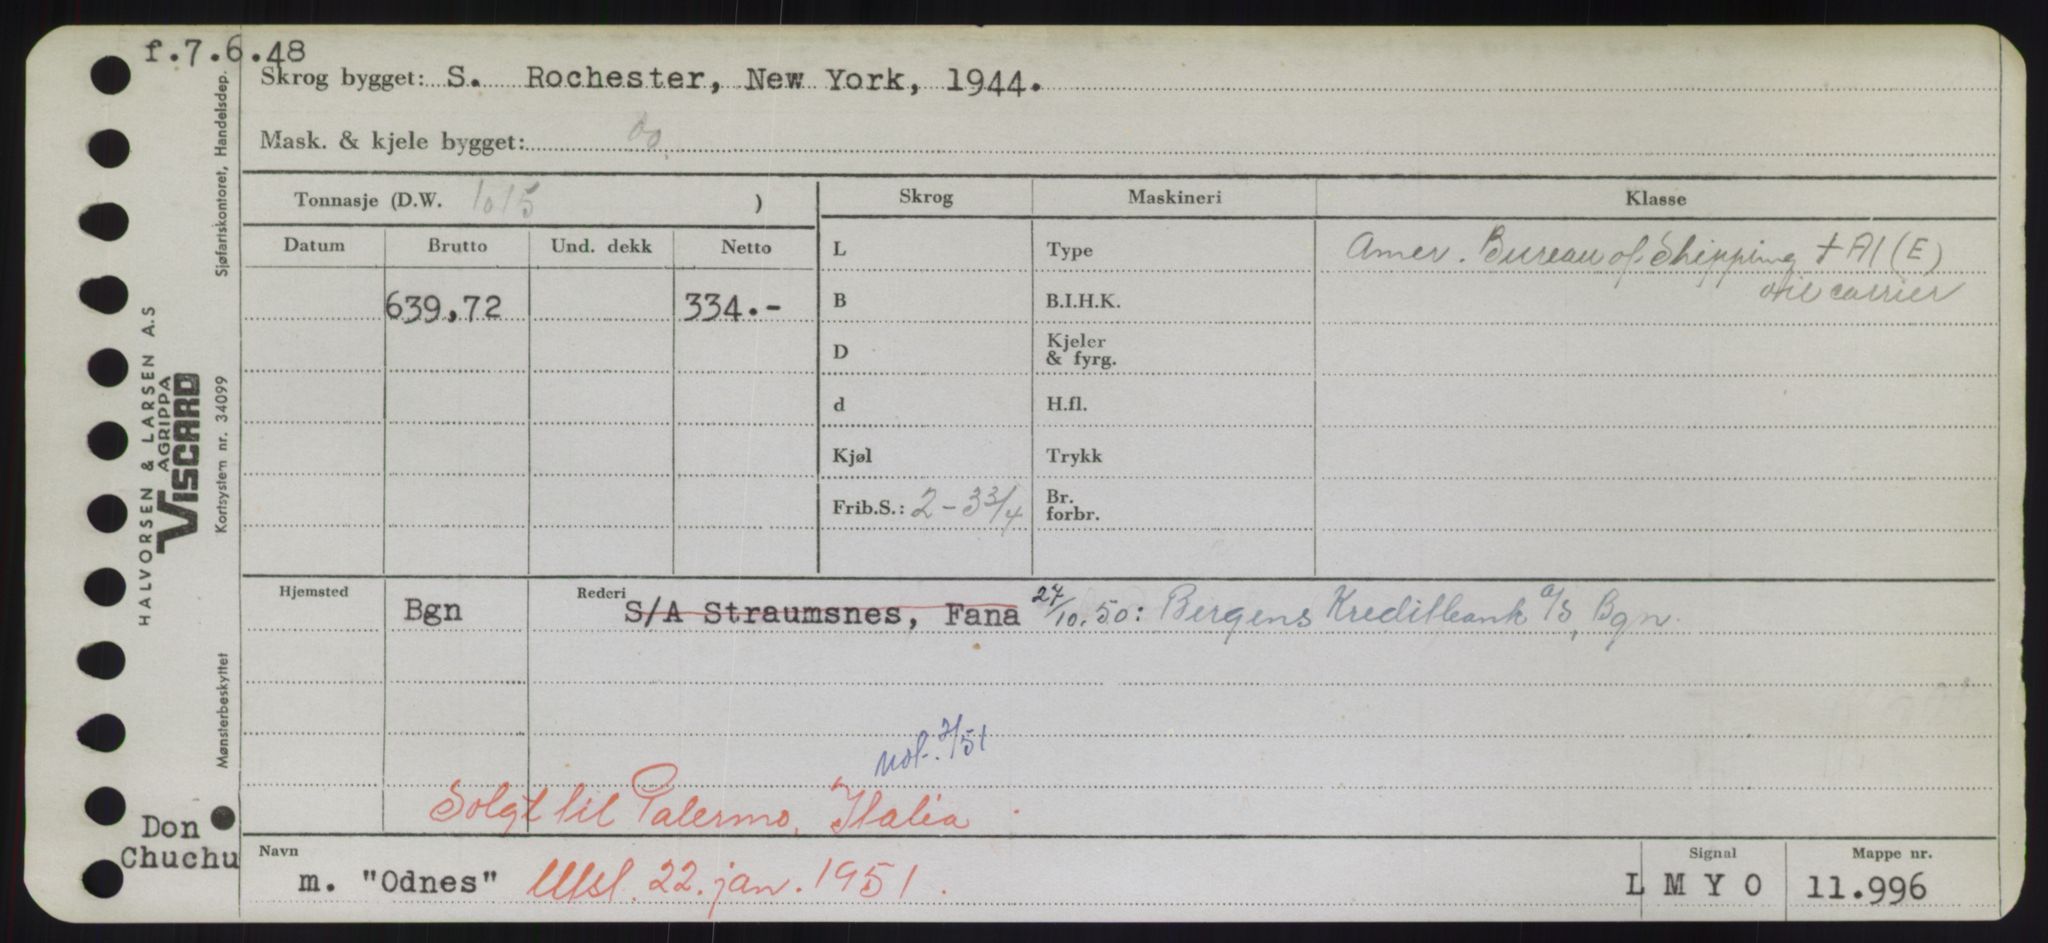 f.7.6.48
Skrog bygget: S. Rochester, New York, 1944.
Mask. & kjele bygget: do.
Tonnasje (D.W. 1015 )
Skrog
Maskineri
Klasse
Datum
Brutto
Und. dekk
Netto
L
Type
Amer. Bureau of Shipping + A1 (E)
oil carrier
639,72
334.-
B
B.I.H.K.
D
Kjeler
& fyrg.
d
H.fl.
Kjøl
Trykk
Frib.S.: 2-3 3/4
Br.
forbr.
Hjemsted
Bgn
Rederi
S/A Straumsnes, Fana 27/10.50: Bergens Kreditbank a/s, Bgn.
not. 2/51
Solgt til Palermo, Italia
Navn
m. "Odnes" Utsl. 22. jan. 1951.
Signal
L M Y O
Mappe nr.
11.996
Don
Chuchu
HALVORSEN & LARSEN A.S
AGRIPPA
VISCARD
Mønsterbeskyttet Kortsystem nr. 34099 Sjøfartskontoret, Handelsdep.